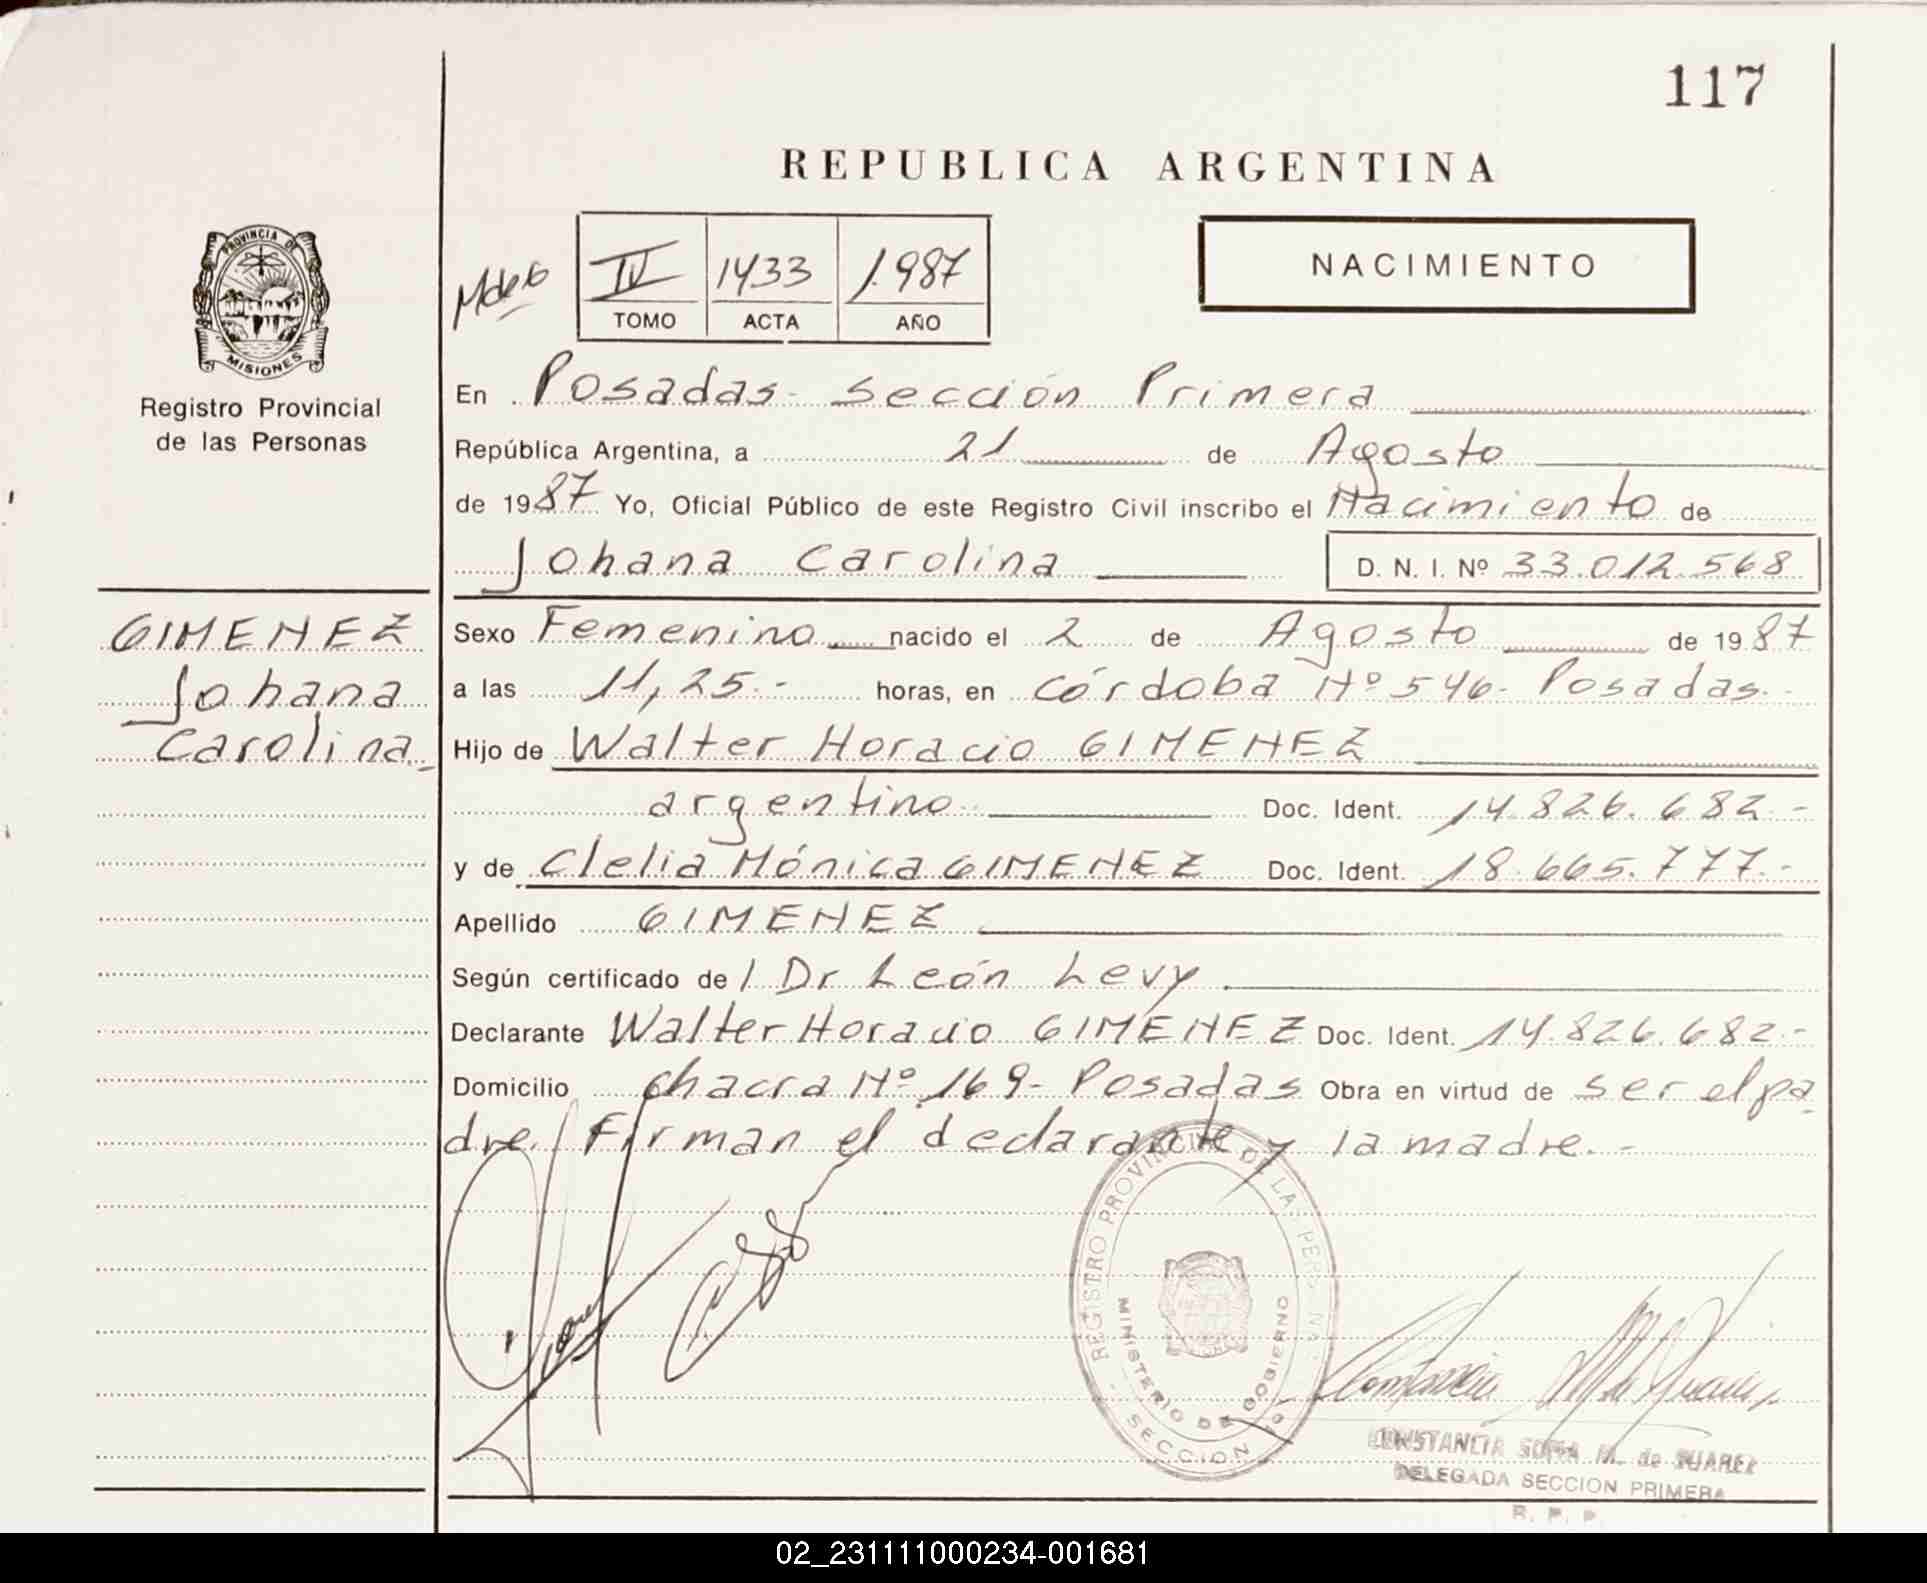 117
REPUBLICA ARGENTINA
PROVINCIA DE
MISIONES
Registro Provincial
de las Personas
IV 1433 1987
TOMO ACTA AÑO
NACIMIENTO
En Posadas - Sección Primera
República Argentina, a 21 de Agosto
de 1987 Yo, Oficial Público de este Registro Civil inscribo el Nacimiento de
Johana Carolina D. N. I. Nº 33.012.568
GIMENEZ
Johana
Carolina.
Sexo Femenino nacido el 2 de Agosto de 1987
a las 11,25.- horas, en Córdoba Nº 546- Posadas.-
Hijo de Walter Horacio GIMENEZ
argentino Doc. Ident. 14.826.682.-
y de Clelia Mónica GIMENEZ Doc. Ident. 18.665.777.-
Apellido GIMENEZ
Según certificado de / Dr León Levy
Declarante Walter Horacio GIMENEZ Doc. Ident. 14.826.682.-
Domicilio Chacra Nº 169- Posadas Obra en virtud de ser el pa
dre. Firman el declarante y la madre.-
REGISTRO PROVINCIAL DE LAS PERSONAS
MINISTERIO DE GOBIERNO
SECCION 1a
CONSTANCIA SOFIA M. de SUAREZ
DELEGADA SECCION PRIMERA
R. P. P.
02_231111000234-001681